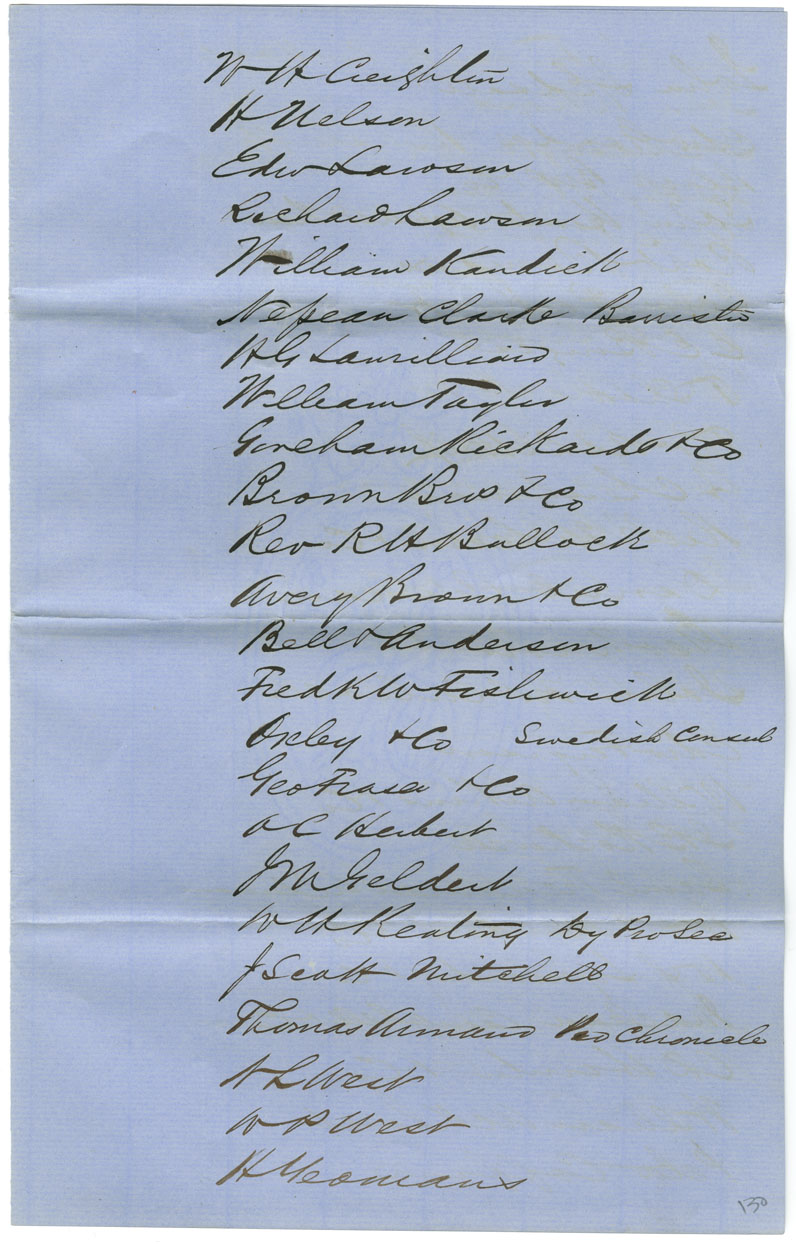 W H Creighton
H Nelson
Edw Lawson
Richard Lawson
William Kandick
Nepean Clarke Barrister
H G Laurilliard
William Taylor
Goreham Rickards & Co
Brown Bros & Co
Rev R H Bullock
Avery Brown & Co
Bell & Anderson
Fredk W Fishwick
Oxley & Co Swedish Consul
Geo Fraser & Co
A C Herbert
J M Geldert
W H Keating Dy Pro Sec
J Scott Mitchell
Thomas Annand Chronicle
N L West
W P West
H Yeomans
130